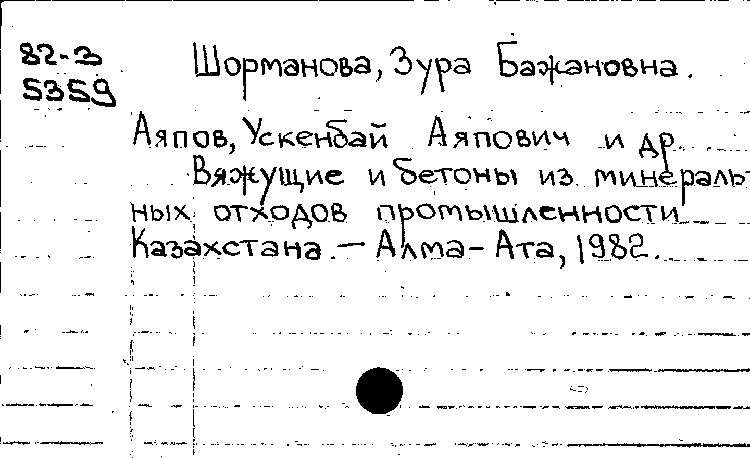 82-3
5359
Шорманова, Зура Бажановна.
Аяпов, Ускенбай Аяпович и др.
Вяжущие и бетоны из минераль-
ных отходов промышленности
Казахстана. — Алма-Ата, 1982.